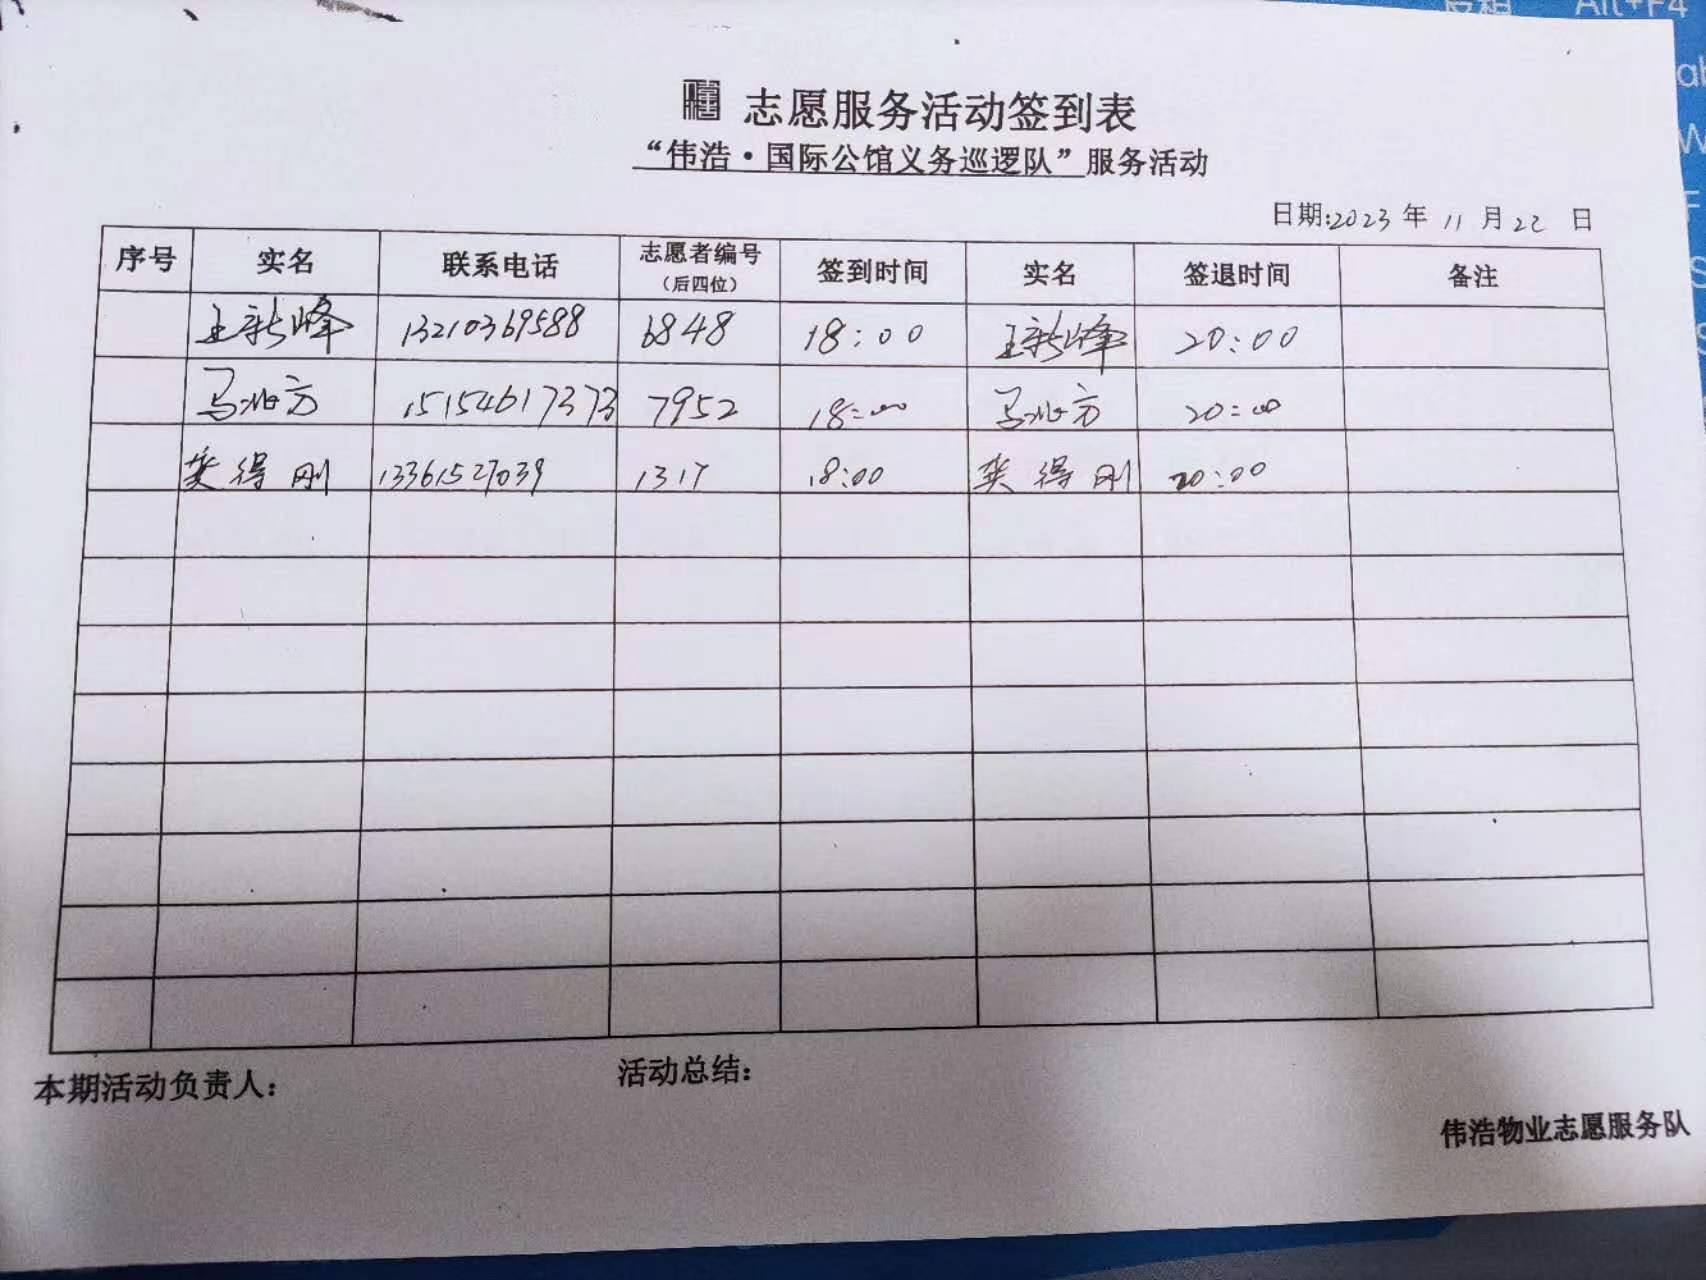 反相 Alt+F4
志愿服务活动签到表
“伟浩·国际公馆义务巡逻队”服务活动
日期:2023 年 11 月 22 日
序号 实名 联系电话 志愿者编号（后四位） 签到时间 实名 签退时间 备注
王新峰 13210369588 6848 18:00 王新峰 20:00
马兆方 15154617373 7952 18:00 马兆方 20:00
樊得刚 13361527039 1317 18:00 樊得刚 20:00
本期活动负责人： 活动总结：
伟浩物业志愿服务队